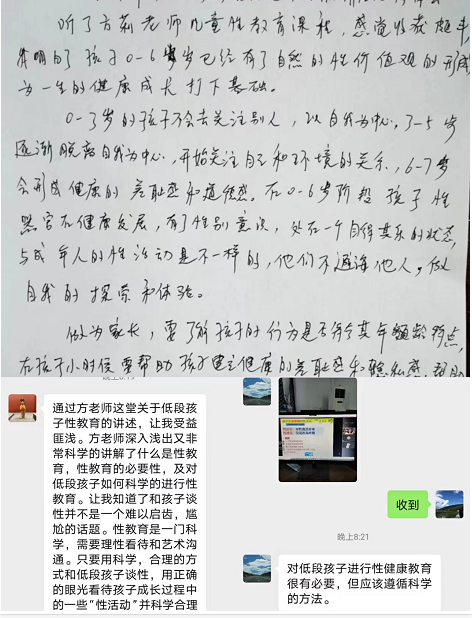 听了方莉老师儿童性教育课程，感觉收获颇丰
明白了孩子0-6岁已经有了自然的性价值观的形成
为一生的健康成长打下基础。
0-3岁的孩子不会去关注别人，以自我为中心，3-5岁
逐渐脱离自我为中心，开始关注自己和环境的关系，6-7岁
会形成健康的羞耻感和道德感。在0-6岁阶段孩子性
器官在健康发展，有了性别意识，处在一个自得其乐的状态，
与成年人的性活动是不一样的，他们不避讳他人，做
自我的探索和体验。
做为家长，要了解孩子的行为是否符合其年龄特点，
在孩子小时候要帮助孩子建立健康的羞耻感和隐私感，帮助
通过方老师这堂关于低段孩
子性教育的讲述，让我受益
匪浅。方老师深入浅出又非
常科学的讲解了什么是性教
育，性教育的必要性，及对
低段孩子如何科学的进行性
教育。让我知道了和孩子谈
性并不是一个难以启齿，尴
尬的话题。性教育是一门科
学，需要理性看待和艺术沟
通。只要用科学，合理的方
式和低段孩子谈性，用正确
的眼光看待孩子成长过程中
的一些“性活动”并科学合理
收到
晚上8:21
对低段孩子进行性健康教育
很有必要，但应该遵循科学
的方法。